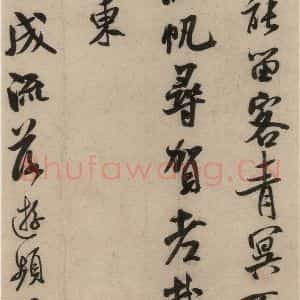 能留客青冥不
帆尋賀老載
東
成流落遊頻
shufawang.cn